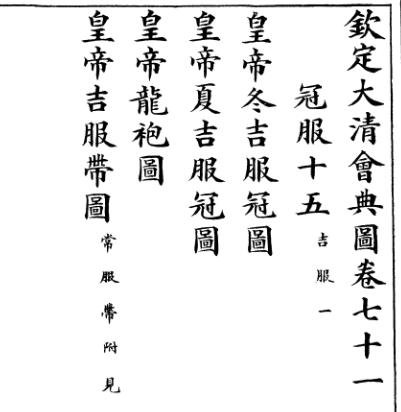 欽定大清會典圖卷七十一
冠服十五 吉服一
皇帝冬吉服冠圖
皇帝夏吉服冠圖
皇帝龍袍圖
皇帝吉服帶圖 常服帶附見